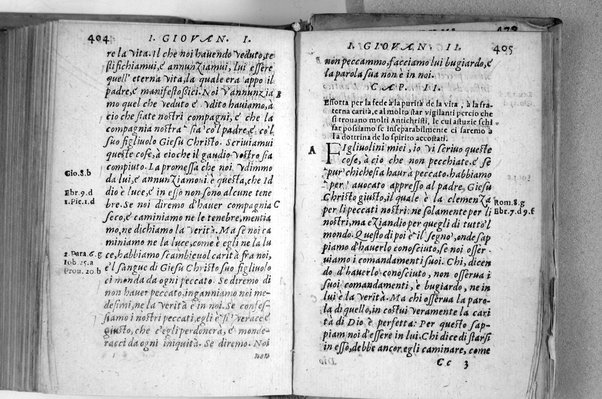 404 I. GIOVAN. I.
re la vita. Il che noi havendo veduto, te
stifichiamui, & annunziamui, lui essere
quell' eterna vita, la quale era appo il
padre, & manifestossici. Noi v'annunzia
mo quel che veduto & vdito haviamo, à
ciò che siate nostri compagni, & che la
compagnia nostra sia col padre, & col
suo figliuolo Giesu Christo. Scriviamui
queste cose, à ciò che il gaudio vostro sia
compiuto. La promessa che noi vdimmo
da lui, & annunziamo: è questa, che Id
dio è luce, & in esso non sono alcune tene
bre. Se noi diremo d'haver compagnia
seco, & caminiamo ne le tenebre, mentia
mo, ne dichiamo la verità. Ma se noi ca
miniamo ne la luce, come è egli ne la lu
ce, habbiamo scambievol carità fra noi,
& l sangue di Giesu Christo suo figliuolo
ci monda da ogni peccato. Se diremo di
non haver peccato, inganniamo noi me-
desimi, ne la verità è in noi. Se confes-
siamo i nostri peccati, egli è sì verace &
giusto, che & egli perdonerà, & monde-
racci da ogni iniquità. Se diremo. Noi
non
B
Gio. 8. b
Ebr. 9. d
1. Pie. 1. d
C
2. Para. 6. g
Iob. 25. a
Prou. 20. b
I. GIOVAN. II. 405
non peccammo, facciamo lui bugiardo, &
la parola sua non è in noi.
CAP. II.
Essorta per la fede à la purità de la vita, à la fra-
terna carità, e al molto star vigilanti percio che
si trouano molti Antichristi, le cui astuzie schi
far possiamo se inseparabilmente ci saremo à
la dottrina de lo spirito accostati.
A
Figliuolini miei, io vi scriuo queste
cose, à ciò che non pecchiate. & se
pur chichesia haurà peccato. habbiamo
per auuocato appresso al padre, Giesu
Christo giusto, il quale è la clemenza
per li peccati nostri: ne solamente per li
nostri, ma eziandio per quegli di tutto'l
mondo. Questo di poi è'l segno, onde sap-
piamo d'haverlo conosciuto, se noi osser-
viamo i comandamenti suoi. Chi, dicen
do d'haverlo conosciuto, non osserva i
suoi comandamenti, è bugiardo, ne in
lui è la verità. Ma chi osserva la paro-
la di quello, in costui veramente la cari
tà di Dio è perfetta: Per questo sap-
piam noi d'essere in lui. Chi dice di starsi
in esso, debbe ancor egli caminare, come
Rom. 8. g
Ebr. 7. d. 9. f
Cc 3